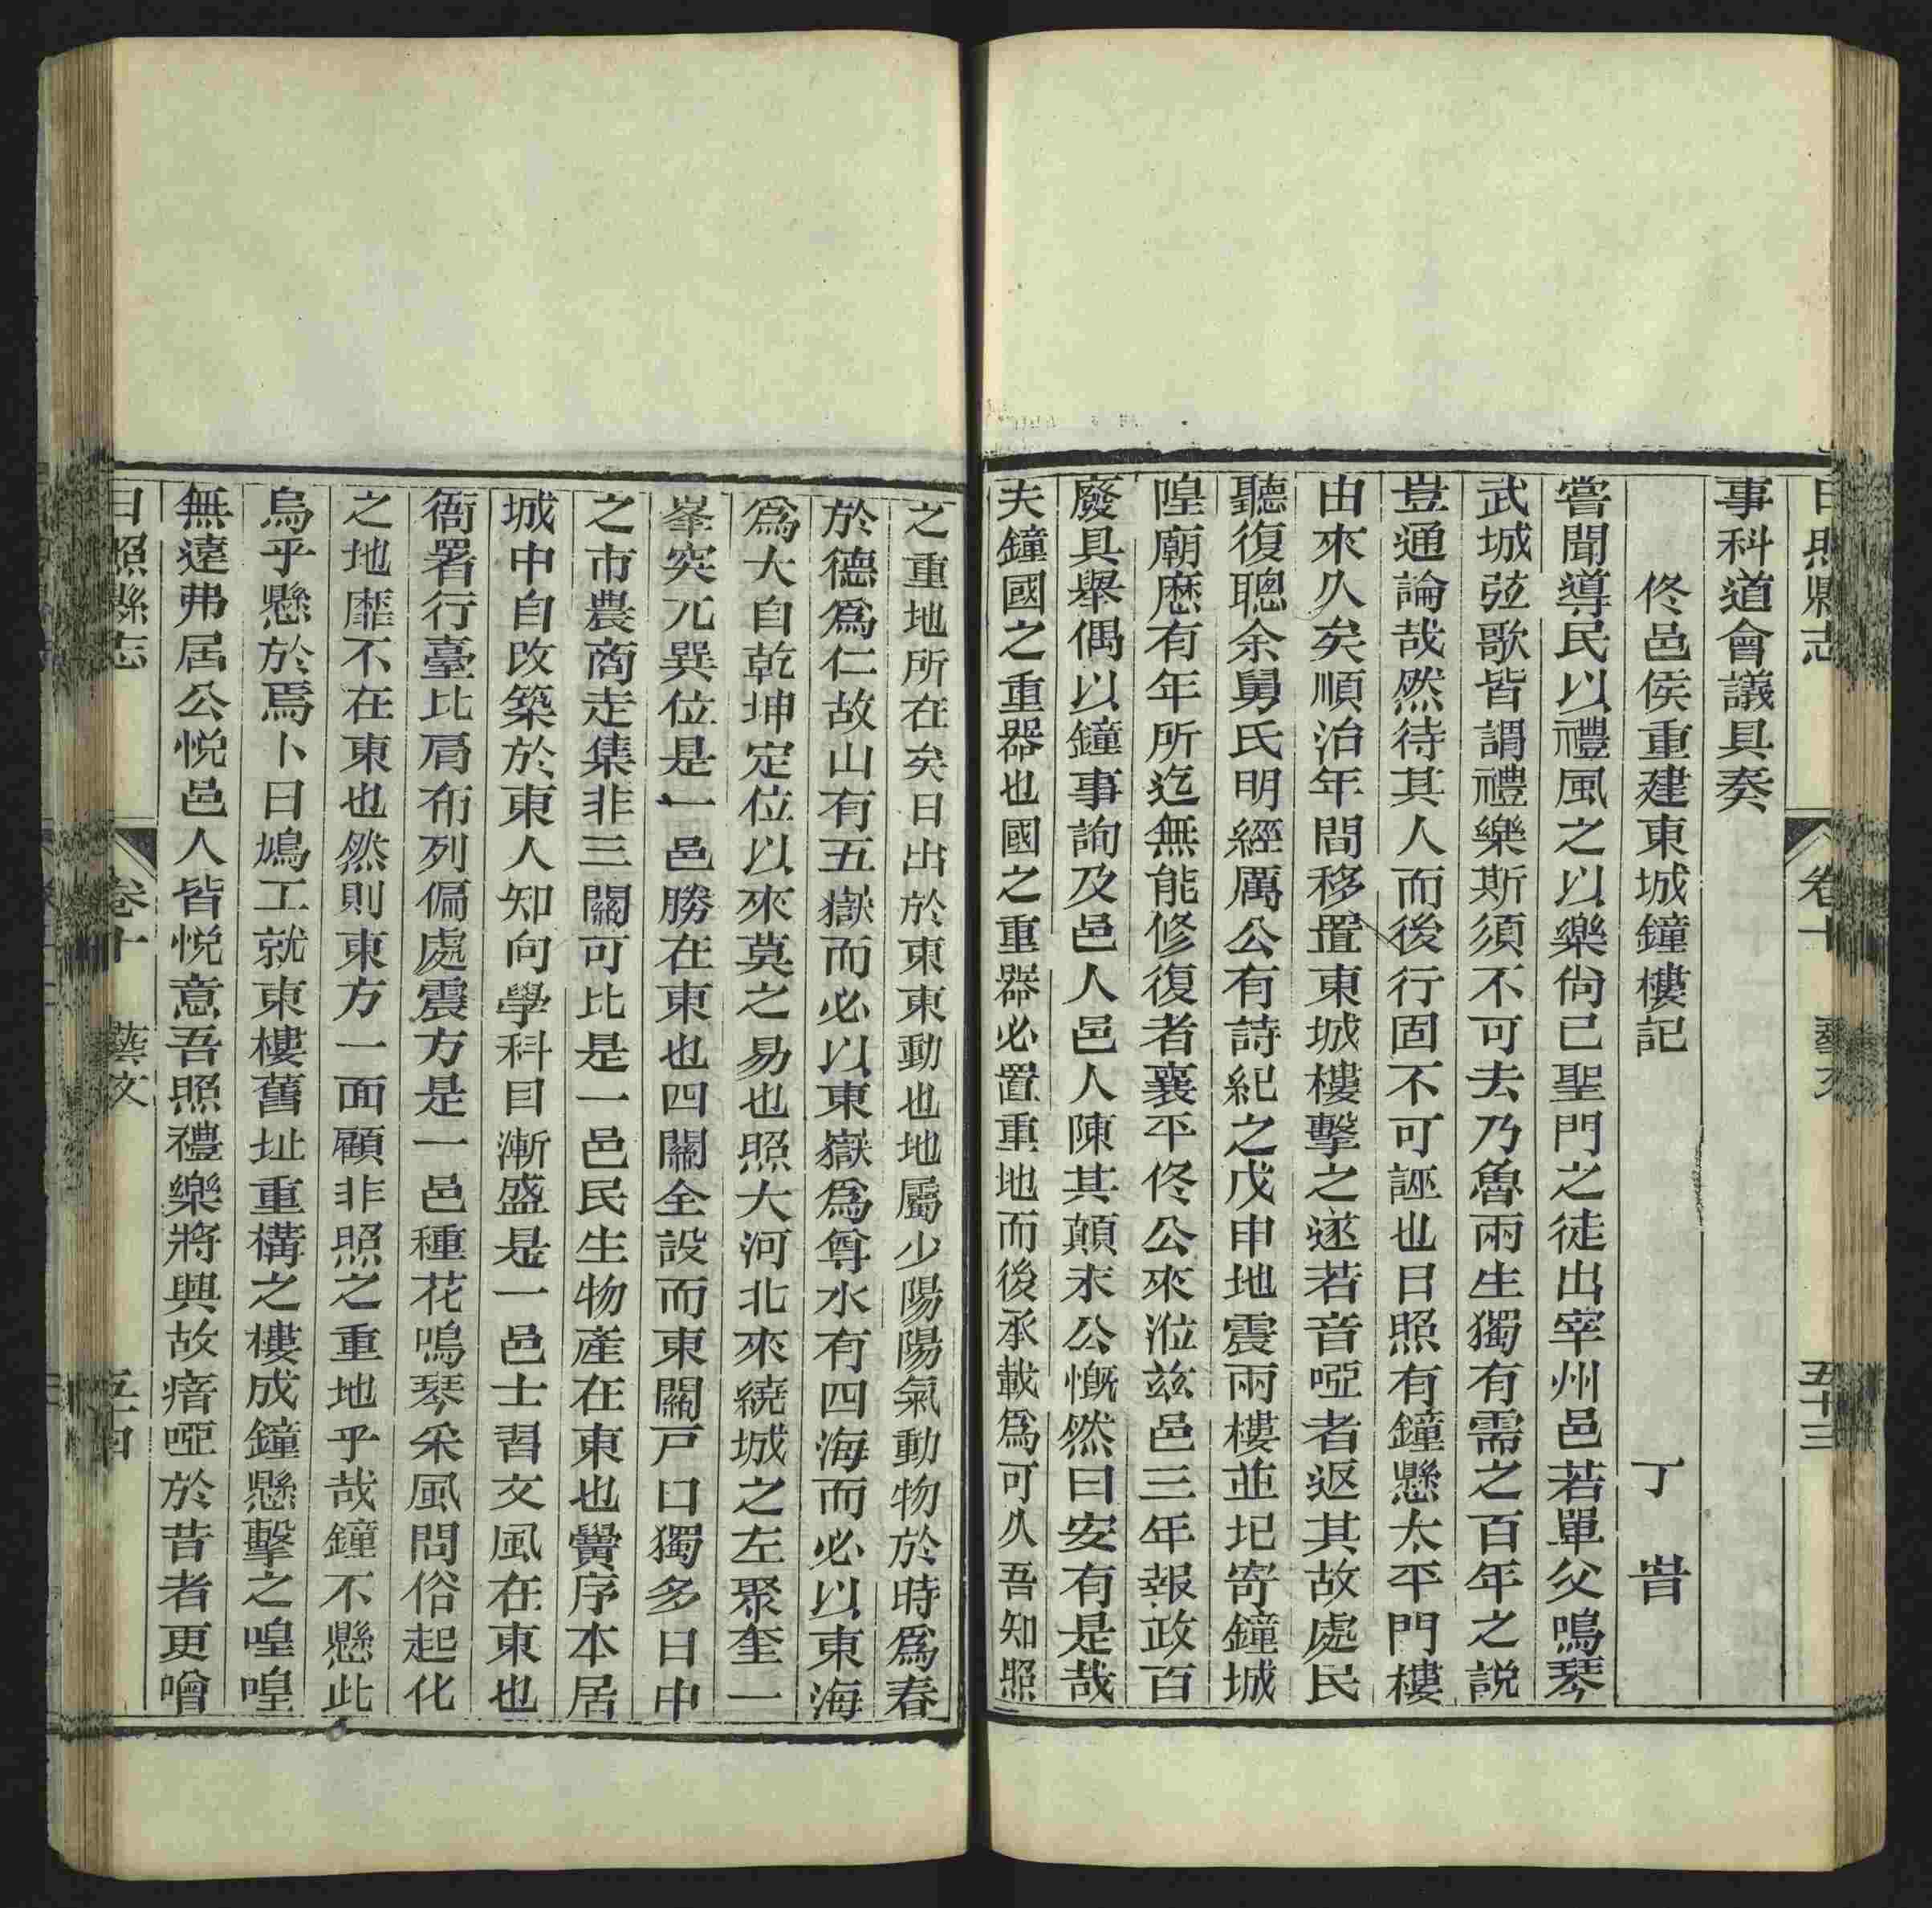 日照縣志 卷十 藝文 五十三
事科道會議具奏
佟邑侯重建東城鐘樓記 丁峕
嘗聞導民以禮風之以樂尙已聖門之徒出宰州邑若單父鳴琴
武城弦歌皆謂禮樂斯須不可去乃魯兩生獨有需之百年之説
豈通論哉然待其人而後行固不可誣也日照有鐘懸太平門樓
由來久矣順治年間移置東城樓擊之遂若音啞者返其故處民
聽復聰余舅氏明經厲公有詩紀之戊申地震兩樓並圮寄鐘城
隍廟厯有年所迄無能修復者襄平佟公來涖兹邑三年報政百
廢具舉偶以鐘事詢及邑人邑人陳其顛末公慨然曰安有是哉
夫鐘國之重器也國之重器必置重地而後承載爲可久吾知照
之重地所在矣日出於東東動也地屬少陽陽氣動物於時爲春
於德爲仁故山有五嶽而必以東嶽爲尊水有四海而必以東海
爲大自乾坤定位以來莫之易也照大河北來繞城之左聚奎一
峯突兀巽位是一邑勝在東也四關全設而東關戸口獨多日中
之市農商走集非三關可比是一邑民生物產在東也黌序本居
城中自改築於東人知向學科目漸盛是一邑士習文風在東也
衙署行臺比肩布列偏處震方是一邑種花鳴琴采風問俗起化
之地靡不在東也然則東方一面顧非照之重地乎哉鐘不懸此
烏乎懸於焉卜日鳩工就東樓舊址重構之樓成鐘懸擊之喤喤
無遠弗屆公悦邑人皆悦意吾照禮樂將興故瘖啞於昔者更噲
日照縣志 卷十 藝文